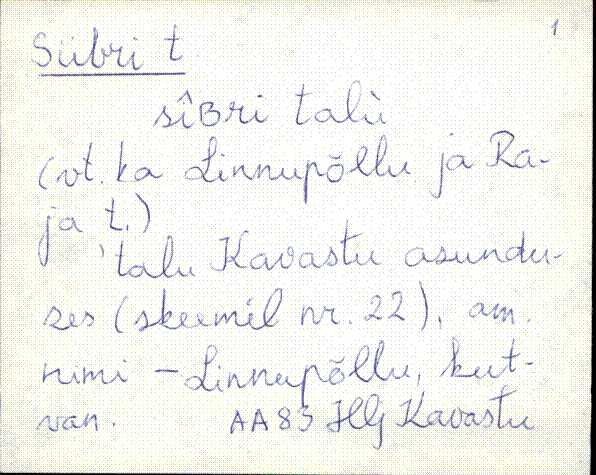 1
Siibri t
sîʙri talù
(vt. ka Linnupõllu ja Ra-
ja t.)
'talu Kavastu asundu-
ses (skeemil nr. 22), am.
nimi - Linnupõllu, kut-
van. AA 83 HG Kavastu